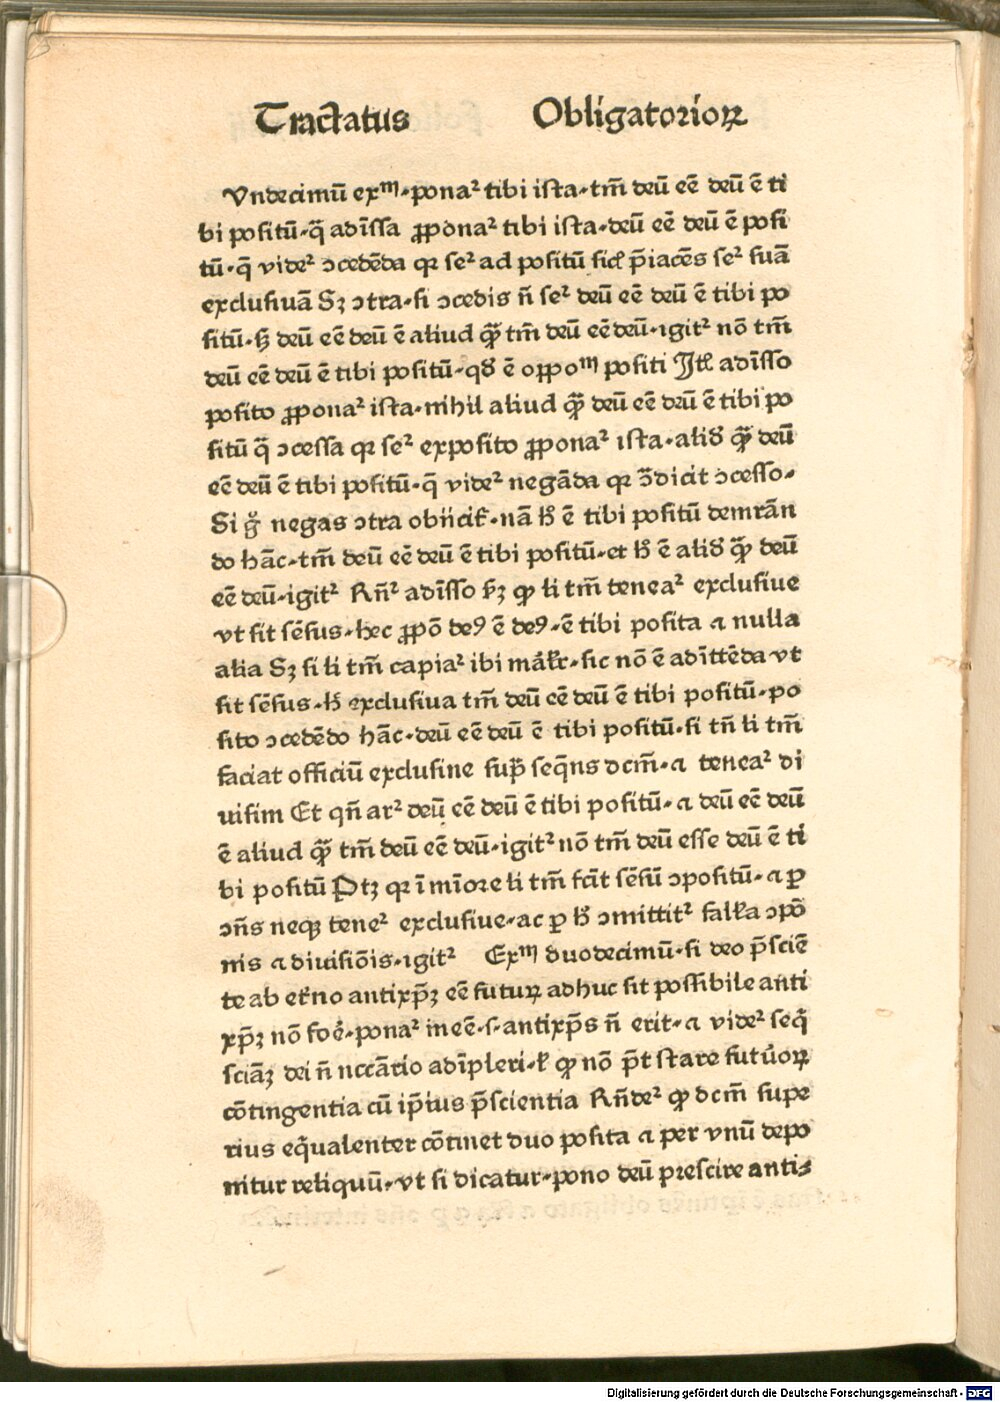 Tractatus Obligatorioꝝ
Vndecimū exᵐ·ponaᷣ tibi ista·tm̄ deū eē deū ē ti
bi positū·q̄ adīssa ꝓponaᷣ tibi ista·deū eē deū ē posi
tū·q̄ videᷣ ↄcedēda qꝛ seᷣ ad positū sicꝉ p̄iacēs seᷣ suā
exclusiuā Sꝫ ↄtra·si ↄcedis ñ seᷣ deū eē deū ē tibi po
sitū·sꝫ deū eē deū ē aliud qᷓꝫ tm̄ deū eē deū·igitᷣ nō tm̄
deū eē deū ē tibi positū·qđ ē oppoᵐ positi Itꝉ adīsso
posito ꝓponaᷣ ista·nihil aliud qᷓꝫ deū eē deū ē tibi po
sitū q̄ ↄcessa qꝛ seᷣ exposito ꝓponaᷣ ista·aliđ qᷓꝫ deū
eē deū ē tibi positū·q̄ videᷣ negāda qꝛ ↄ̄dicit ↄcesso·
Si gͦ negas ↄtra obiicit̉·nā ꝉꝫ ē tibi positū demrān
do hāc·tm̄ deū eē deū ē tibi positū·et ꝉꝫ ē aliđ qᷓꝫ deū
eē deū·igitᷣ Rñᷣ adīsso ꝉꝫ ꝙ li tm̄ teneaᷣ exclusiue
vt sit sēsus·hec ꝓpō deꝯ ē deꝯ·ē tibi posita ⁊ nulla
alia Sꝫ si li tm̄ capiaᷣ ibi māꝉr·sic nō ē adīttēda vt
sit sēsus·ꝉꝫ exclusiua tm̄ deū eē deū ē tibi positū·po
sito ↄcedēdo hāc·deū eē deū ē tibi positū·si tñ li tm̄
faciat officiū exclusiue sup̄ seq̄ns dcm̄·⁊ teneaᷣ di
uisim Et qñ arᷣ deū eē deū ē tibi positū·⁊ deū eē deū
ē aliud qᷓꝫ tm̄ deū eē deū·igitᷣ nō tm̄ deū esse deū ē ti
bi positū Ptꝫ qꝛ ī mīore li tm̄ fcit̄ sēsū ↄpositū·⁊ ꝑ
ↄñs neqꝫ teneᷣ exclusiue·ac ꝑ ꝉꝫ ↄmittitᷣ fallꝛa ↄpō
nis ⁊ diuisiōis·igitᷣ Exᵐ duodecimū·si deo p̄sciē
te ab et̉no antixp̄ꝫ eē futuꝝ adhuc sit possibile anti
xp̄ꝫ nō foē·ponaᷣ in eē·s·antixp̄s ñ erit·⁊ videᷣ seq̄
sciāꝫ dei ñ nccāꝛio adīpleri·ꝉ ꝙ nō p̄t stare futūoꝝ
cōtingentia cū ip̄ius p̄scientia Rñdeᷣ ꝙ dcm̄ supe
rius eq̄ualenter cōtinet duo posita ⁊ per vnū depo
nitur reliquū·vt si dicatur·pono deū prescire anti⸗
Digitalisierung gefördert durch die Deutsche Forschungsgemeinschaft - DFG